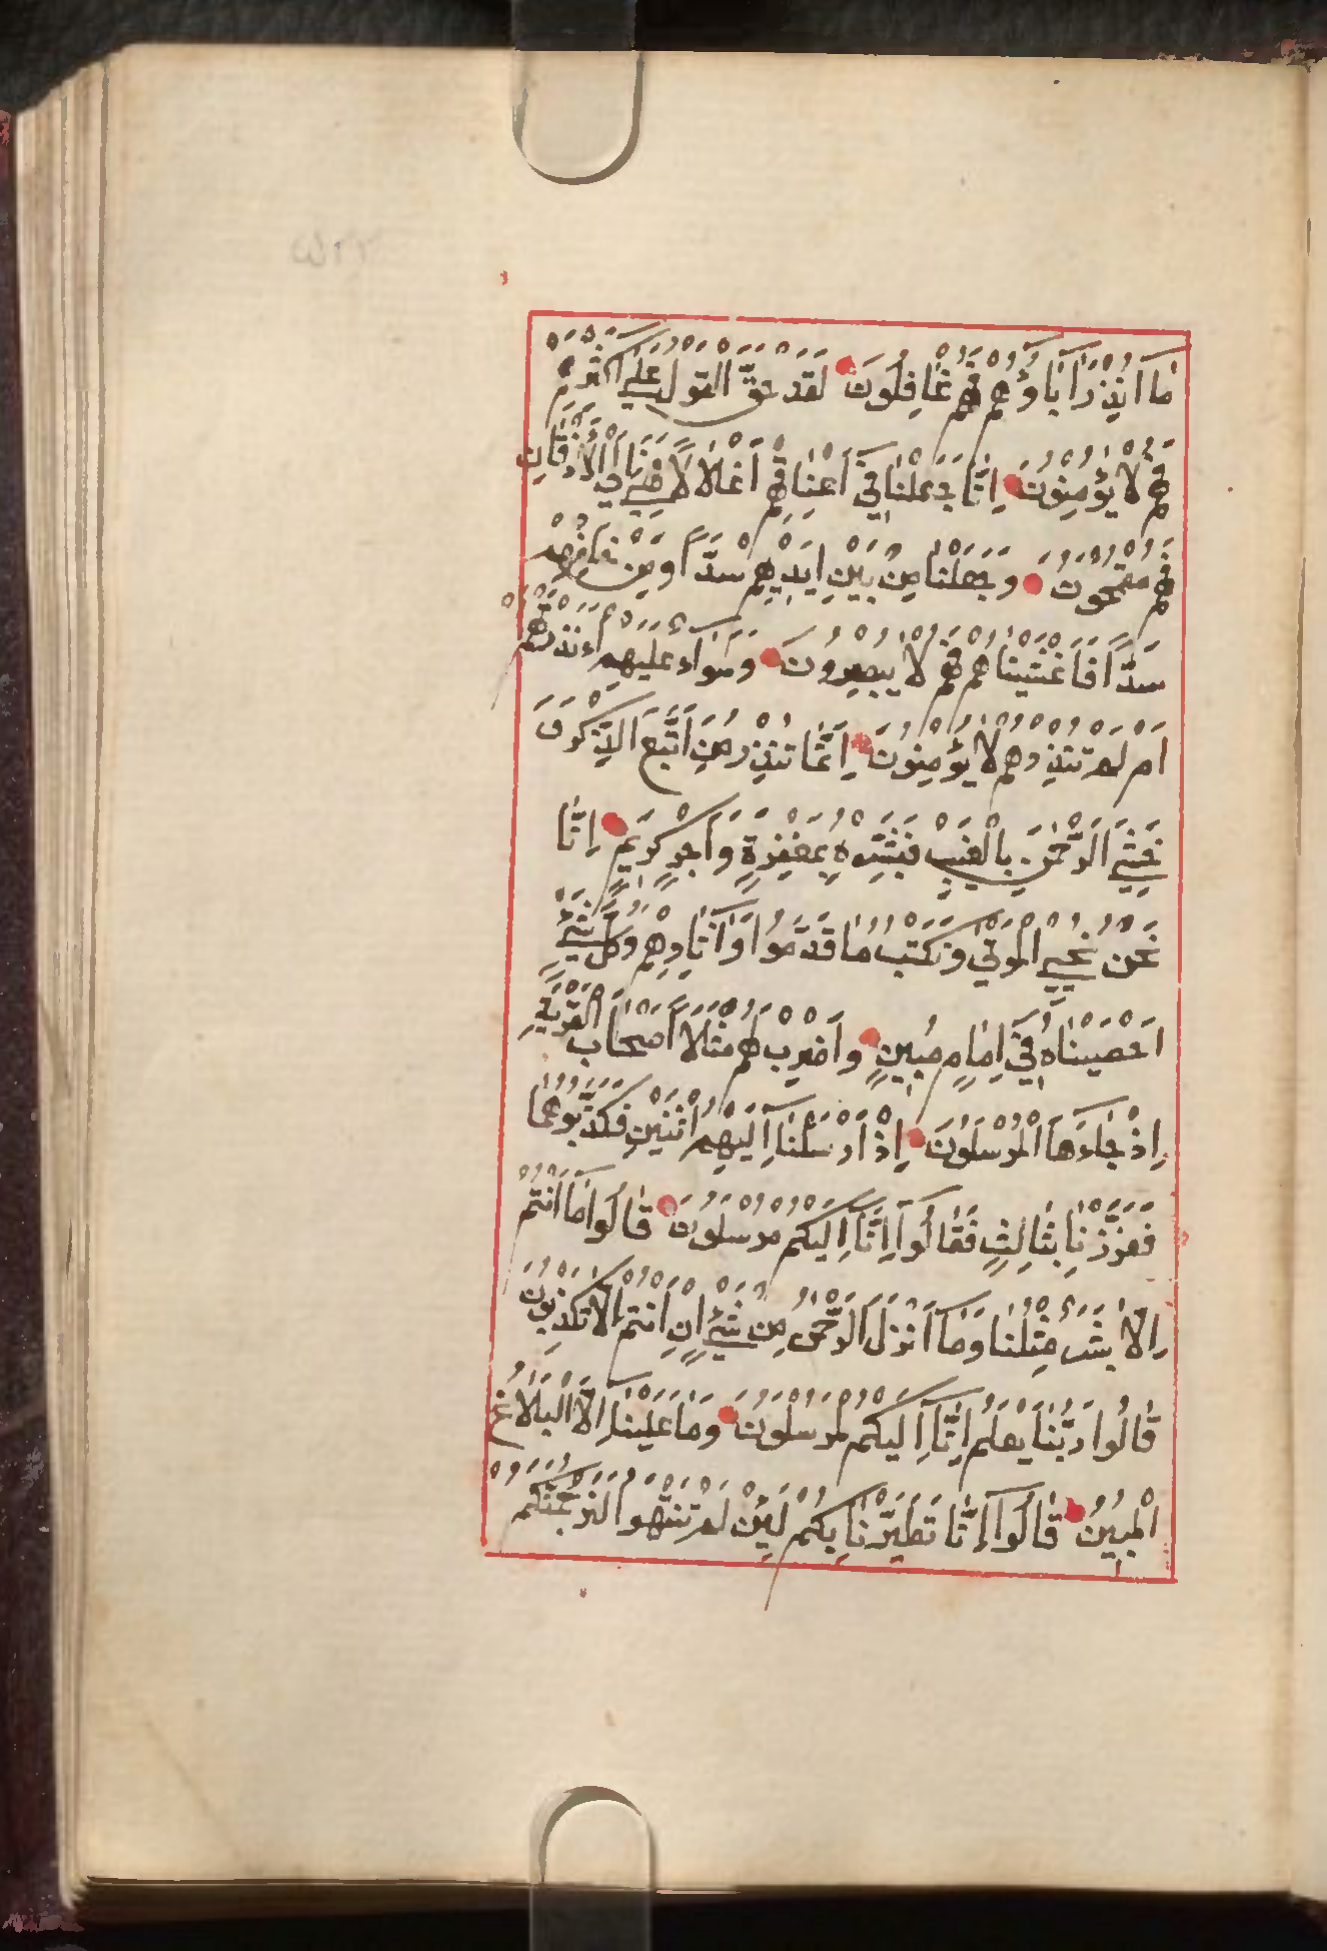 مَا اُنْذِرَ اٰبَاؤُهُمْ فَهُمْ غَافِلُونَ لَقَدْ حَقَّ الْقَوْلُ عَلٰى اَكْثَرِهِمْ
فَهُمْ لَا يُؤْمِنُونَ اِنَّا جَعَلْنَا فِي اَعْنَاقِهِمْ اَغْلَالًا فَهِيَ اِلَى الْاَذْقَانِ
فَهُمْ مُقْمَحُونَ وَجَعَلْنَا مِنْ بَيْنِ اَيْدِيهِمْ سَدًّا وَمِنْ خَلْفِهِمْ
سَدًّا فَاَغْشَيْنَاهُمْ فَهُمْ لَا يُبْصِرُونَ وَسَوَاءٌ عَلَيْهِمْ ءَاَنْذَرْتَهُمْ
اَمْ لَمْ تُنْذِرْهُمْ لَا يُؤْمِنُونَ اِنَّمَا تُنْذِرُ مَنِ اتَّبَعَ الذِّكْرَ وَ
خَشِيَ الرَّحْمٰنَ بِالْغَيْبِ فَبَشِّرْهُ بِمَغْفِرَةٍ وَاَجْرٍ كَرِيمٍ اِنَّا
نَحْنُ نُحْيِي الْمَوْتٰى وَنَكْتُبُ مَا قَدَّمُوا وَاٰثَارَهُمْ وَكُلَّ شَيْءٍ
اَحْصَيْنَاهُ فِي اِمَامٍ مُبِينٍ وَاضْرِبْ لَهُمْ مَثَلًا اَصْحَابَ الْقَرْيَةِ
اِذْ جَاءَهَا الْمُرْسَلُونَ اِذْ اَرْسَلْنَا اِلَيْهِمُ اثْنَيْنِ فَكَذَّبُوهُمَا
فَعَزَّزْنَا بِثَالِثٍ فَقَالُوا اِنَّا اِلَيْكُمْ مُرْسَلُونَ قَالُوا مَا اَنْتُمْ
اِلَّا بَشَرٌ مِثْلُنَا وَمَا اَنْزَلَ الرَّحْمٰنُ مِنْ شَيْءٍ اِنْ اَنْتُمْ اِلَّا تَكْذِبُونَ
قَالُوا رَبُّنَا يَعْلَمُ اِنَّا اِلَيْكُمْ لَمُرْسَلُونَ وَمَا عَلَيْنَا اِلَّا الْبَلَاغُ
الْمُبِينُ قَالُوا اِنَّا تَطَيَّرْنَا بِكُمْ لَئِنْ لَمْ تَنْتَهُوا لَنَرْجُمَنَّكُمْ